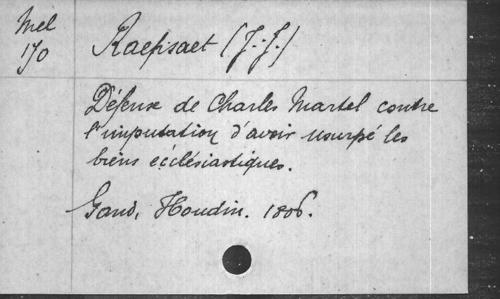 Mel
170
Raepsaet (J.-J.)
Défense de Charles Martel contre
l'imputation d'avoir usurpé les
biens ecclésiastiques.
Gand, Houdin. 1806.